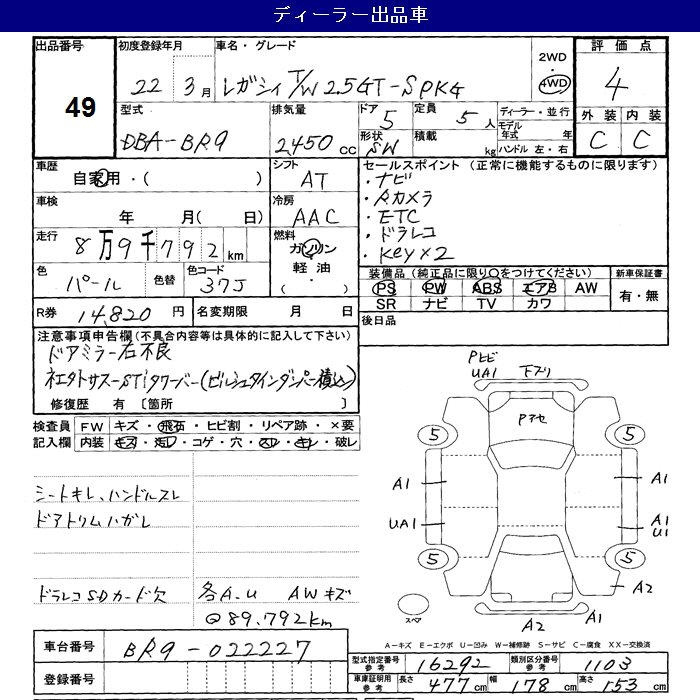 ディーラー出品車
出品番号
49
初度登録年月
22年 3月
車名・グレード
レガシィ T/W 2.5GT-SPKG
2WD
・
4WD
評価点
4
外装 内装
C C
型式
DBA-BR9
排気量
2450 cc
ドア
5
定員
5人
形状
SW
積載
kg
ディーラー・並行
モデル年式 年式
ハンドル 左・右
車歴
自家用・( )
シフト
AT
車検
年 月( 日)
冷房
AAC
走行
8万9千792km
燃料
ガソリン
軽油
色
パール
色替
色コード
37J
R券 14,820円
名変期限 月 日
セールスポイント (正常に機能するものに限ります)
・ナビ
・Aカメラ
・ETC
・ドラレコ
・Key×2
装備品(純正品に限り○をつけてください)
PS PW ABS エアB AW
SR ナビ TV カワ
新車保証書
有・無
後日品
注意事項申告欄(不具合内容等は具体的に記入して下さい)
ドアミラー右不良
STiタワーバー(ビルシュタインダンパー積込)
修復歴 有 [箇所 ]
検査員記入欄
FW キズ・飛石・ヒビ割・リペア跡・×要
内装 キズ・汚レ・コゲ・穴・スレ・キレ・破レ
シートキレ、ハンドルスレ
ドアトリムハガレ
ドラレコSDカード欠
各A.U AWキズ
@89.792km
Pヒビ
UA1
下ズリ
Pアセ
5 5
A1 A1
UA1 A1
U1
5 5
A2
スペア
A1
A2
A－キズ E－エクボ U－凹み W－補修跡 S－サビ C－腐食 XX－交換済
車台番号
BR9-022227
登録番号
型式指定番号 参考
16292
類別区分番号 参考
1103
車庫証明用 参考
長さ 477cm
幅 178cm
高さ 153cm